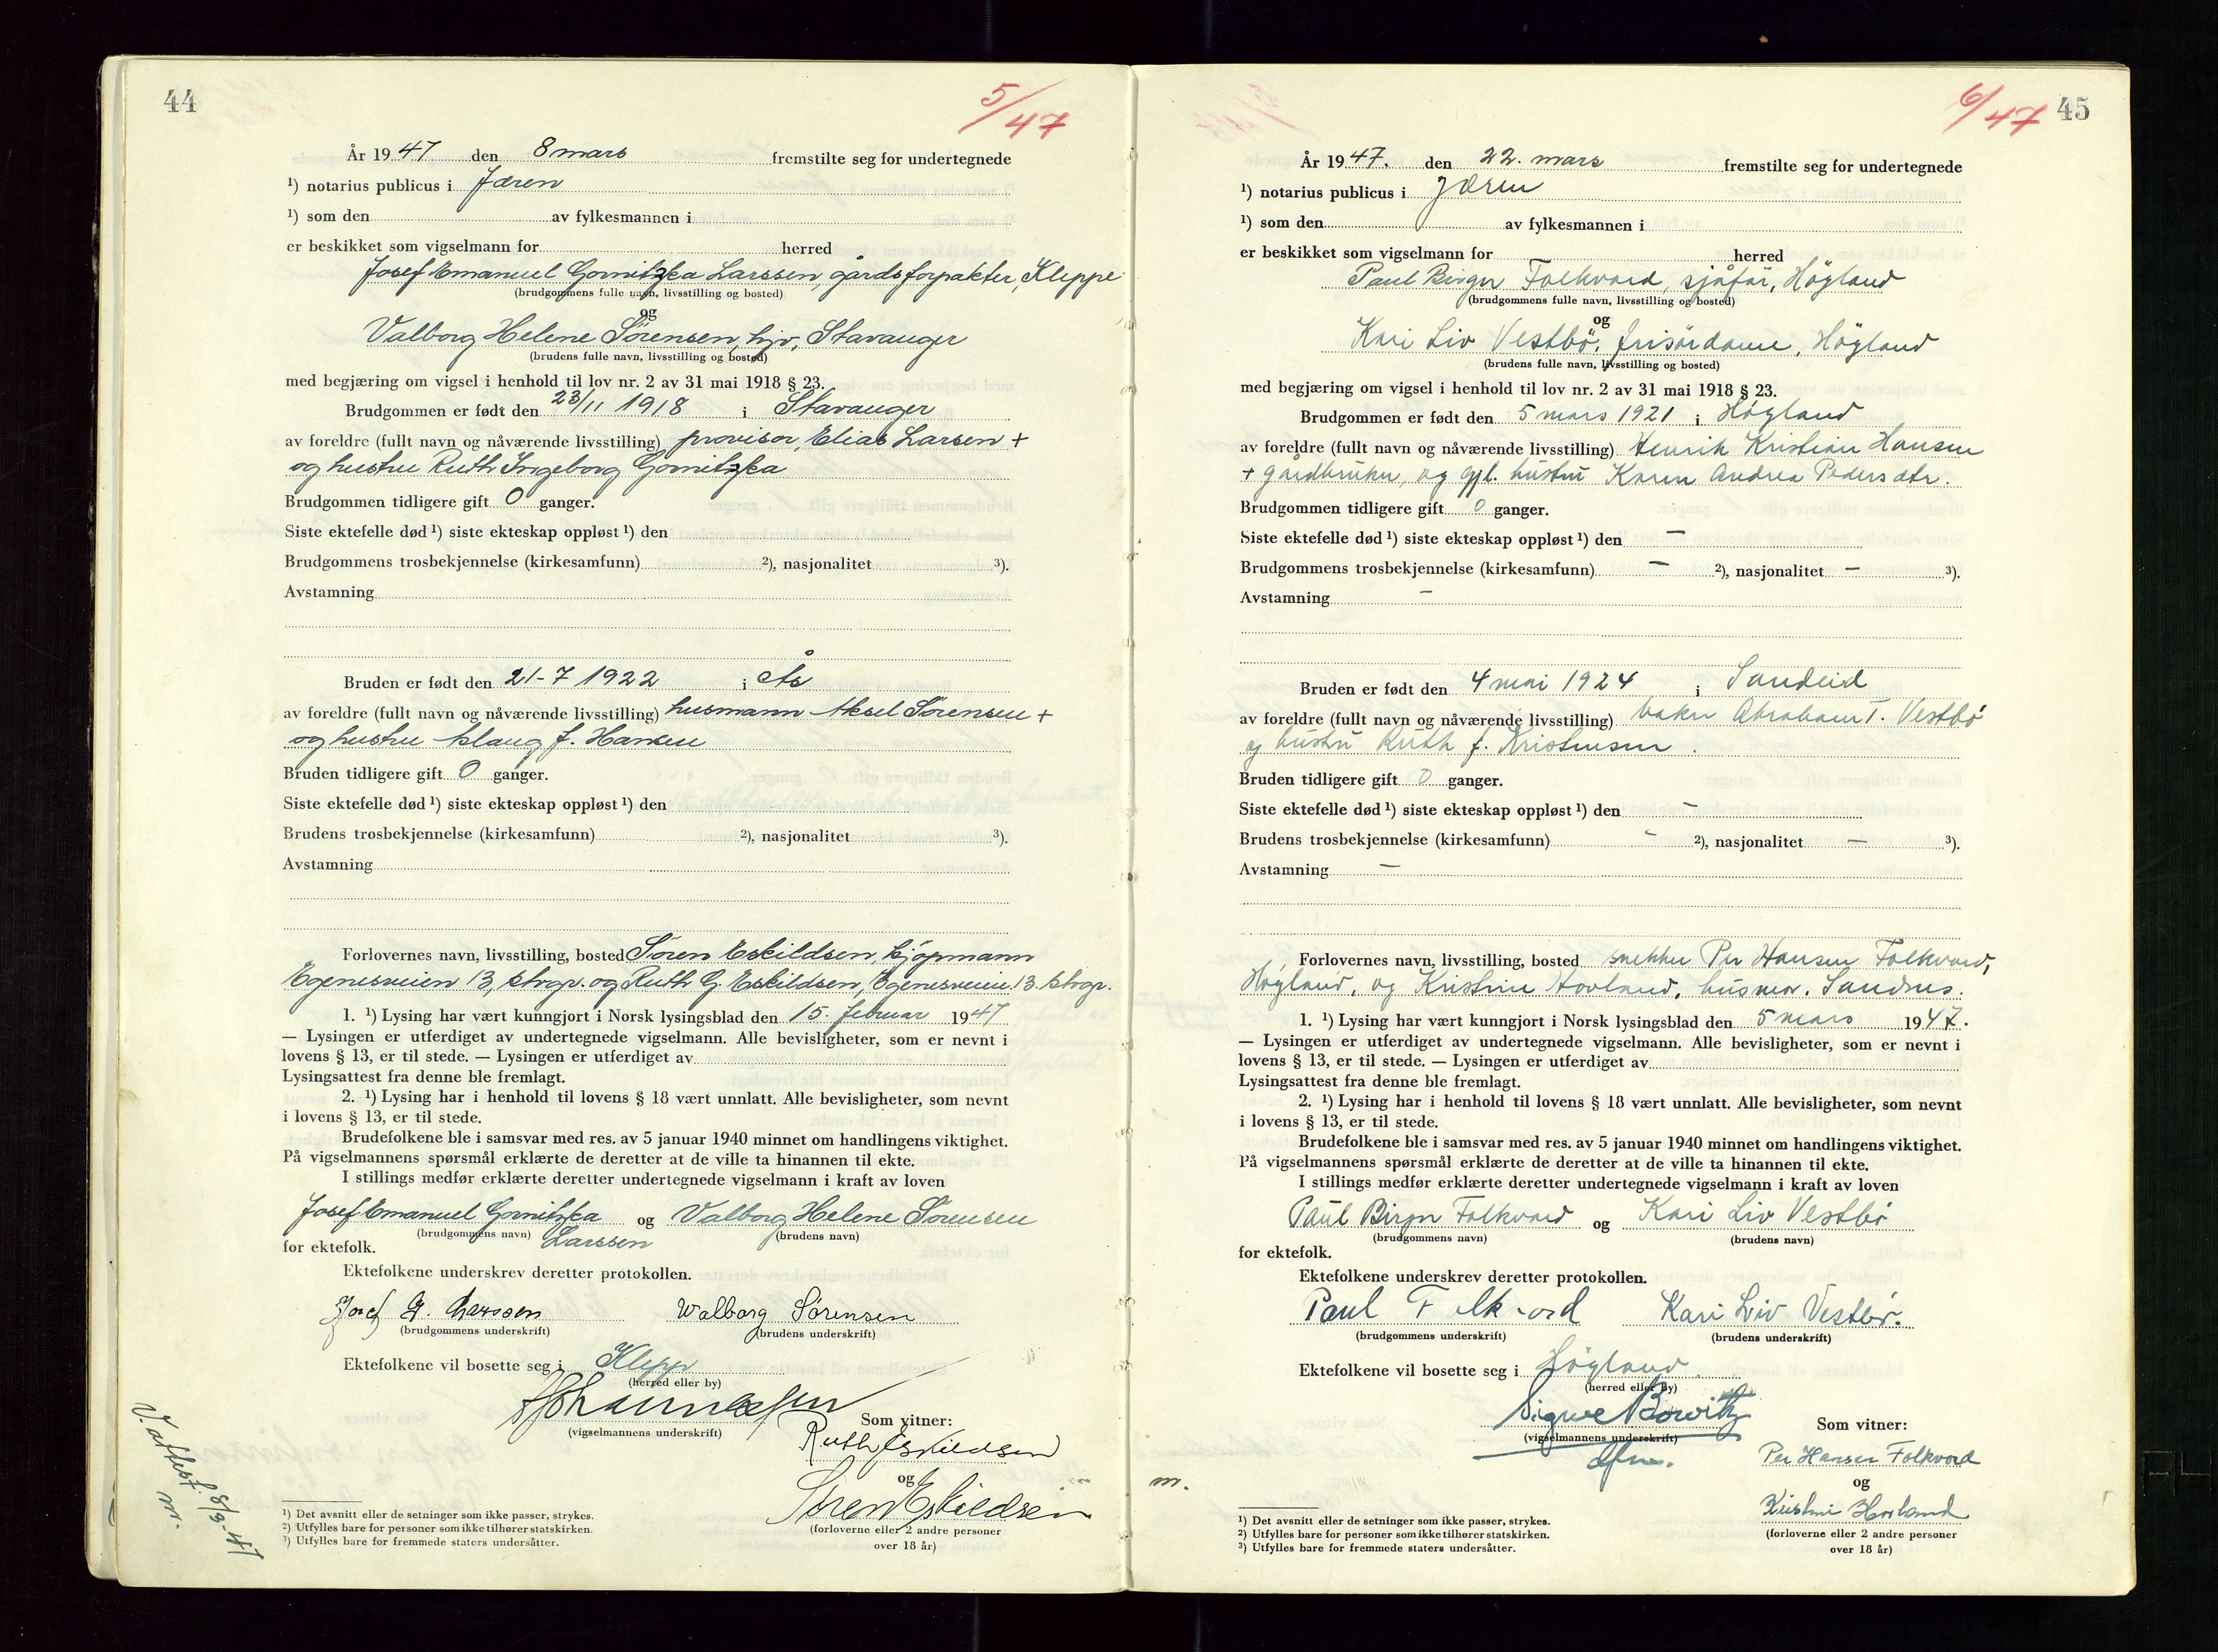 44
5/47
År 1947 den 8 mars fremstilte seg for undertegnede
¹) notarius publicus i Jæren
¹) som den av fylkesmannen i
er beskikket som vigselmann for herred
Josef Emanuel Gornitzka Larssen, gårdsforpakter, Kleppe
(brudgommens fulle navn, livsstilling og bosted)
og
Valborg Helene Sørensen, hjv, Stavanger
(brudens fulle navn, livsstilling og bosted)
med begjæring om vigsel i henhold til lov nr. 2 av 31 mai 1918 § 23.
Brudgommen er født den 23/11 1918 i Stavanger
av foreldre (fullt navn og nåværende livsstilling) provisor Elias Larsen +
og hustru Ruth Ingeborg Gornitzka
Brudgommen tidligere gift 0 ganger.
Siste ektefelle død ¹) siste ekteskap oppløst ¹) den
Brudgommens trosbekjennelse (kirkesamfunn) ²), nasjonalitet ³).
Avstamning
Bruden er født den 21-7 1922 i Ås
av foreldre (fullt navn og nåværende livsstilling) husmann Aksel Sørensen +
og hustru Aslaug f. Hansen
Bruden tidligere gift 0 ganger.
Siste ektefelle død ¹) siste ekteskap oppløst ¹) den
Brudens trosbekjennelse (kirkesamfunn) ²), nasjonalitet ³).
Avstamning
Forlovernes navn, livsstilling, bosted Søren Eskildsen, kjøpmann
Egenesveien 13, Stvgr. og Ruth G. Eskildsen, Egenesveien 13 Stvgr.
1. ¹) Lysing har vært kunngjort i Norsk lysingsblad den 15. februar 1947
— Lysingen er utferdiget av undertegnede vigselmann. Alle bevisligheter, som er nevnt i
lovens § 13, er til stede. — Lysingen er utferdiget av
Lysingsattest fra denne ble fremlagt.
2. ¹) Lysing har i henhold til lovens § 18 vært unnlatt. Alle bevisligheter, som nevnt
i lovens § 13, er til stede.
Brudefolkene ble i samsvar med res. av 5 januar 1940 minnet om handlingens viktighet.
På vigselmannens spørsmål erklærte de deretter at de ville ta hinannen til ekte.
I stillings medfør erklærte deretter undertegnede vigselmann i kraft av loven
Josef Emanuel Gornitzka og Valborg Helene Sørensen
(brudgommens navn) Larssen (brudens navn)
for ektefolk.
Ektefolkene underskrev deretter protokollen.
Josef G. Larssen Valborg Sørensen
(brudgommens underskrift) (brudens underskrift)
Ektefolkene vil bosette seg i Klepp
(herred eller by)
(vigselmannens underskrift)
Som vitner:
Ruth Eskildsen
og
Søren Eskildsen
(forloverne eller 2 andre personer
over 18 år)
V. attest. 8/3-47
m.
¹) Det avsnitt eller de setninger som ikke passer, strykes.
²) Utfylles bare for personer som ikke tilhører statskirken.
³) Utfylles bare for fremmede staters undersåtter.
6/47
45
År 1947. den 22. mars fremstilte seg for undertegnede
¹) notarius publicus i Jæren
¹) som den av fylkesmannen i
er beskikket som vigselmann for herred
Paul Birger Folkvord, sjåfør, Høyland
(brudgommens fulle navn, livsstilling og bosted)
og
Kari Liv Vestbø, frisørdame, Høyland
(brudens fulle navn, livsstilling og bosted)
med begjæring om vigsel i henhold til lov nr. 2 av 31 mai 1918 § 23.
Brudgommen er født den 5 mars 1921 i Høyland
av foreldre (fullt navn og nåværende livsstilling) Henrik Kristian Hansen
+ gårdbruker, og gjl. hustru Karen Andrea Pedersdtr.
Brudgommen tidligere gift 0 ganger.
Siste ektefelle død ¹) siste ekteskap oppløst ¹) den —
Brudgommens trosbekjennelse (kirkesamfunn) — ²), nasjonalitet — ³).
Avstamning —
Bruden er født den 4 mai 1924 i Sandeid
av foreldre (fullt navn og nåværende livsstilling) baker Abraham T. Vestbø
og hustru Ruth f. Kristensen.
Bruden tidligere gift 0 ganger.
Siste ektefelle død ¹) siste ekteskap oppløst ¹) den —
Brudens trosbekjennelse (kirkesamfunn) — ²), nasjonalitet — ³).
Avstamning —
Forlovernes navn, livsstilling, bosted snekker Per Hansen Folkvord,
Høyland, og Kristine Hovland, husmor, Sandnes.
1. ¹) Lysing har vært kunngjort i Norsk lysingsblad den 5 mars 1947.
— Lysingen er utferdiget av undertegnede vigselmann. Alle bevisligheter, som er nevnt i
lovens § 13, er til stede. — Lysingen er utferdiget av
Lysingsattest fra denne ble fremlagt.
2. ¹) Lysing har i henhold til lovens § 18 vært unnlatt. Alle bevisligheter, som nevnt
i lovens § 13, er til stede.
Brudefolkene ble i samsvar med res. av 5 januar 1940 minnet om handlingens viktighet.
På vigselmannens spørsmål erklærte de deretter at de ville ta hinannen til ekte.
I stillings medfør erklærte deretter undertegnede vigselmann i kraft av loven
Paul Birger Folkvord og Kari Liv Vestbø
(brudgommens navn) (brudens navn)
for ektefolk.
Ektefolkene underskrev deretter protokollen.
Paul Folkvord Kari Liv Vestbø.
(brudgommens underskrift) (brudens underskrift)
Ektefolkene vil bosette seg i Høyland
(herred eller by)
Sigwe Borvitz
(vigselmannens underskrift)
dfm.
Som vitner:
Per Hansen Folkvord
og
Kristine Hovland
(forloverne eller 2 andre personer
over 18 år)
m.
¹) Det avsnitt eller de setninger som ikke passer, strykes.
²) Utfylles bare for personer som ikke tilhører statskirken.
³) Utfylles bare for fremmede staters undersåtter.